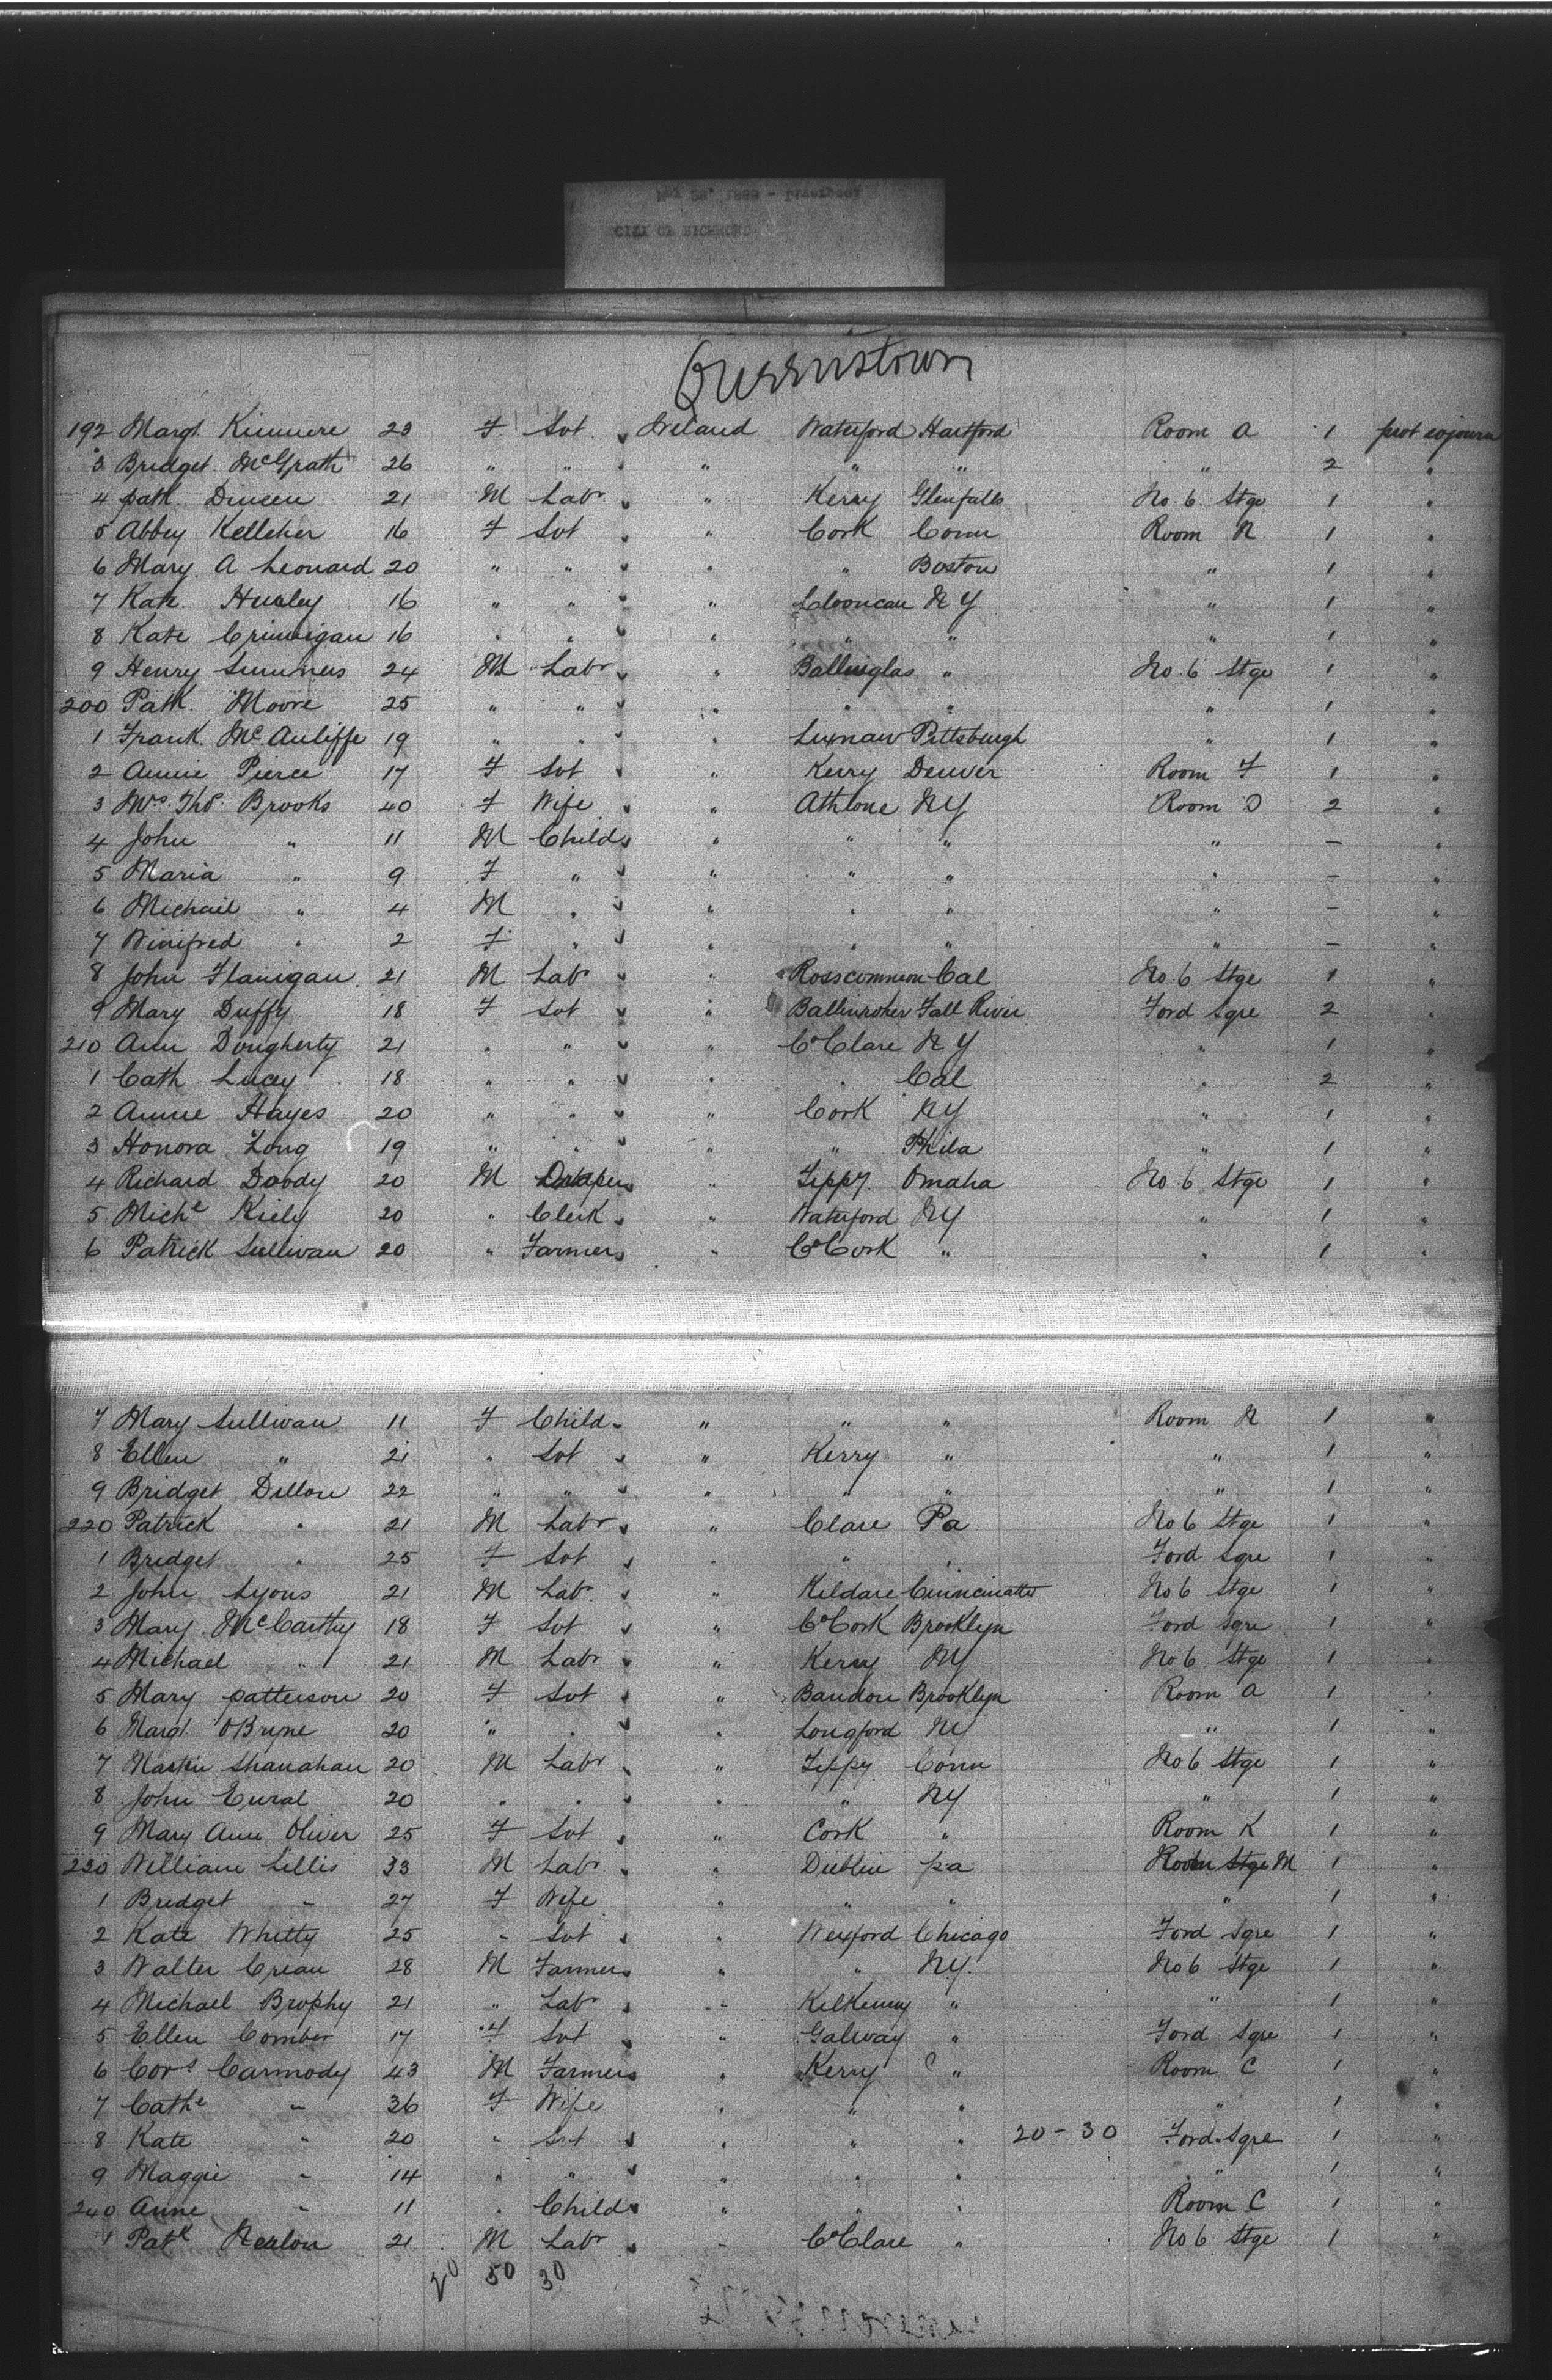 CITY OF RICHMOND
Queenstown
192 Margt. Kinnere 23 F Svt " Ireland Waterford Hartford Room A 1 prot sojourn
3 Bridget McGrath 26 " " " " " " " 2 "
4 path Dineen 21 M Labr " " Kerry Glenfalls No. 6 Stge 1 "
5 Abbey Kelleher 16 F Svt " " Cork Conn Room N 1 "
6 Mary A Leonard 20 " " " " " Boston " 1 "
7 Kate Hurley 16 " " " " Clooncan N Y " 1 "
8 Kate Crimigan 16 " " " " " " " 1 "
9 Henry Summers 24 M Labr " " Ballinglas " No. 6 Stge 1 "
200 Patk Moore 25 " " " " " " " 1 "
1 Frank McAuliffe 19 " " " Lixnaw Pittsburgh " 1 "
2 Annie Pierce 17 F Svt " " Kerry Denver Room F 1 "
3 Mrs. Thos. Brooks 40 F Wife " " Athlone NY Room D 2 "
4 John " 11 M Child " " " " " - "
5 Maria " 9 F " " " " " " - "
6 Michail " 4 M " " " " " " - "
7 Winifred " 2 F " " " " " " - "
8 John Flanigan 21 M Labr " " Rosscommon Cal No 6 Stge 1 "
9 Mary Duffy 18 F Svt " " Ballinroher Fall River Ford Sqre 2 "
210 Ann Dougherty 21 " " " " Co Clare N Y " 1 "
1 Cath Lucey 18 " " " " " Cal " 2 "
2 Annie Hayes 20 " " " " Cork NY " 1 "
3 Honora Long 19 " " " " " Phila " 1 "
4 Richard Doody 20 M Draper " " Tippy. Omaha No 6 Stge 1 "
5 Miche Kiely 20 " Clerk " " Waterford NY " 1 "
6 Patrick Sullivan 20 " Farmer " " Co Cork " " 1 "
7 Mary Sullivan 11 F Child " " " " Room N 1 "
8 Ellen " 21 " Svt " " Kerry " " 1 "
9 Bridget Dillon 22 " " " " " " " 1 "
220 Patrick " 21 M Labr " " Clare Pa No 6 Stge 1 "
1 Bridget " 25 F Svt " " " " Ford Sqre 1 "
2 John Lyons 21 M Labr " " Kildare Cinncinatti No 6 Stge 1 "
3 Mary McCarthy 18 F Svt " " Co Cork Brooklyn Ford Sqre 1 "
4 Michael " 21 M Labr " " Kerry NY No 6 Stge 1 "
5 Mary patterson 20 F Svt " " Bandon Brooklyn Room A 1 "
6 Margt. OBryne 20 " " " " Longford NY " 1 "
7 Martin Shanahan 20 M Labr " " Tippy Conn No 6 Stge 1 "
8 John Cural 20 " " " " " NY " 1 "
9 Mary Ann Oliver 25 F Svt " " Cork " Room K 1 "
230 William Lillis 33 M Labr " " Dublin pa Room M 1 "
1 Bridget " 27 F Wife " " " " 1 "
2 Kate Whitty 25 " Svt " " Wexford Chicago Ford Sqre 1 "
3 Walter Crean 28 M Farmer " " " NY. No 6 Stge 1 "
4 Michael Brophy 21 " Labr " " Kilkenny " " 1 "
5 Ellen Comber 17 F Svt " " Galway " Ford Sqre 1 "
6 Cors Carmody 43 M Farmer " " Kerry C " Room C 1 "
7 Cathe " 36 F Wife " " " " 1 "
8 Kate " 20 " Svt " " " " 20-30 Ford Sqre 1 "
9 Maggie " 14 " " " " " " " 1 "
240 Anne " 11 " Child " " " " Room C 1 "
1 Patk Nealon 21 M Labr " " Co Clare " No 6 Stge 1 "
20 50 30